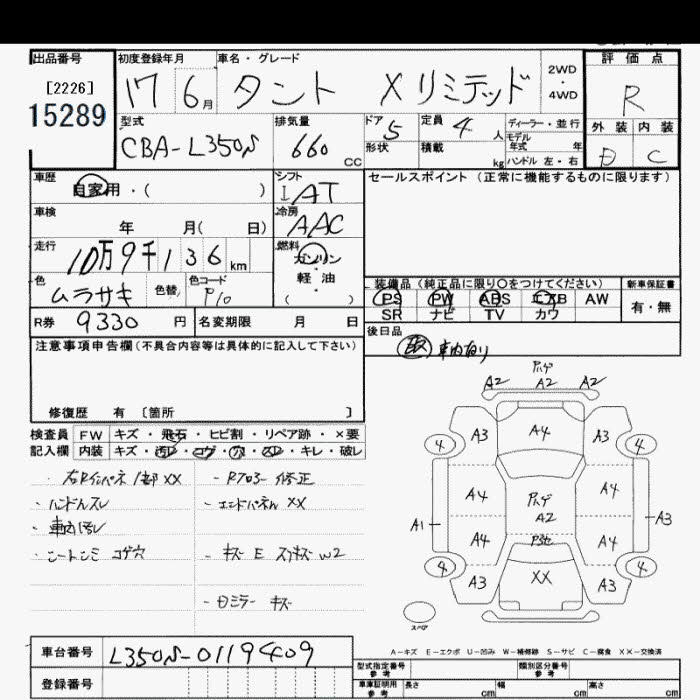 出品番号
[2226]
15289
初度登録年月
17 6月
車名・グレード
タント Xリミテッド
2WD
・
4WD
評価点
R
外装 内装
D C
型式
CBA-L350S
排気量
660 CC
ドア 5
形状
定員 4 人
積載 kg
ディーラー・並行
モデル
年式 年
ハンドル 左・右
車歴
自家用・( )
シフト
IAT
セールスポイント (正常に機能するものに限ります)
車検
年 月( 日)
冷房
AAC
走行
10万9千136km
燃料
ガソリン
軽・油
( )
色
ムラサキ
色替
色コード
P10
装備品 (純正品に限り○をつけてください)
新車保証書
PS PW ABS エアB AW
有・無
SR ナビ TV カワ
R券 9330 円
名変期限 月 日
後日品
取 車内有り
注意事項申告欄(不具合内容等は具体的に記入して下さい)
修復歴 有 〔箇所 〕
検査員 FW キズ・飛石・ヒビ割・リペア跡・×要
記入欄 内装 キズ・汚レ・コゲ・穴・スレ・キレ・破レ
・ハンドルスレ
・車内汚レ
・シートシミ コゲ穴
・Rフロアー 修正
・エンドパネル XX
・キズ E スリキズ W2
・ロミラー キズ
アハゲ
A2 A2 A2
4 A3 A4 A3 4
A4 アハゲ A4
A1 A2 A3
A4 A4
4 A3 XX A3 4
スペア
A-キズ E-エクボ U-凹み W-補修跡 S-サビ C-腐食 XX-交換済
車台番号 L350S-0119409
登録番号
型式指定番号
参考
類別区分番号
参考
車庫証明用
参考
長さ cm 幅 cm 高さ cm